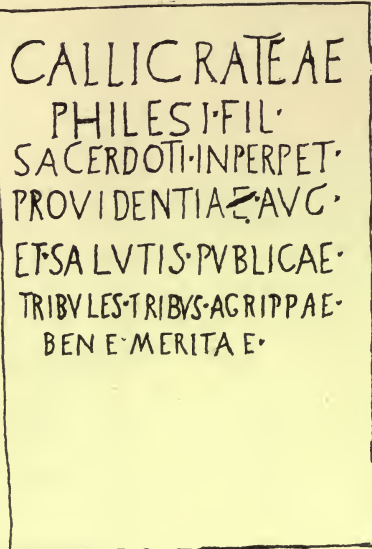 CALLICRATEAE
PHILESI·FIL·
SACERDOTI·INPERPET·
PROVIDENTIAE·AVG·
ET·SALVTIS·PVBLICAE·
TRIBVLES·TRIBVS·AGRIPPAE·
BENE·MERITAE·